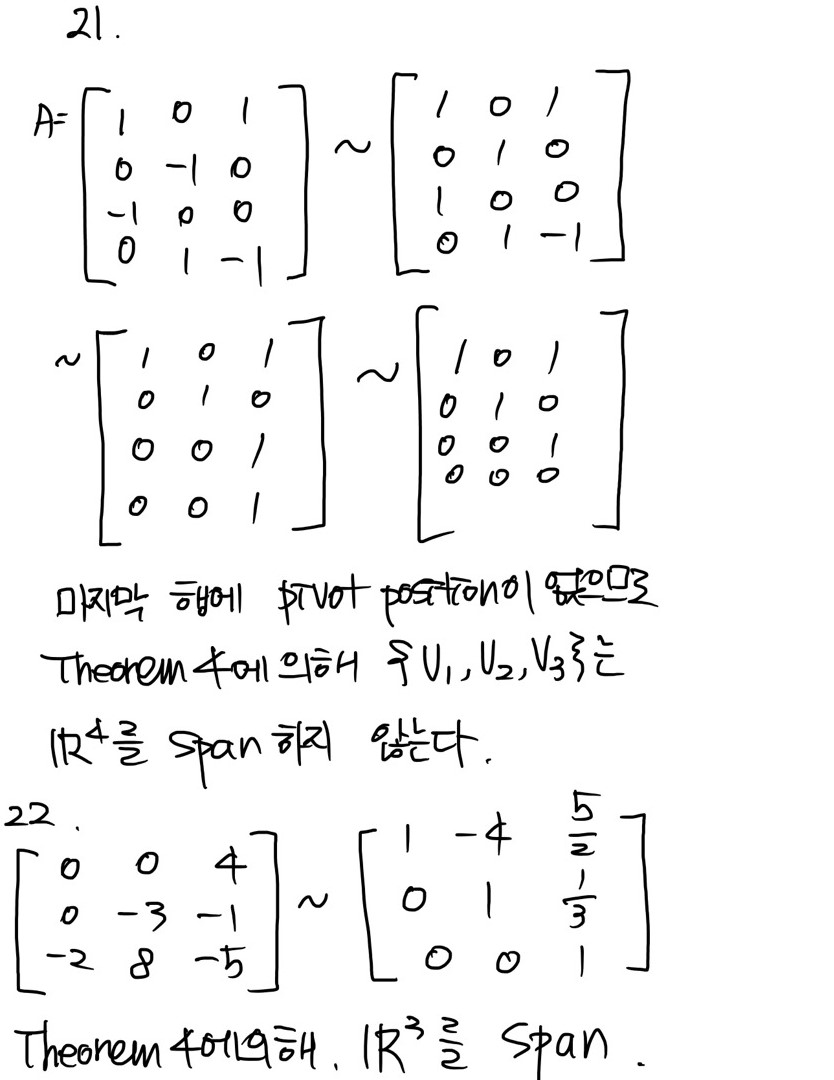 21.
A= [ 1 0 1 ~ [ 1 0 1
0 -1 0 0 1 0
-1 0 0 1 0 0
0 1 -1 ] 0 1 -1 ]
~ [ 1 0 1 ~ [ 1 0 1
0 1 0 0 1 0
0 0 1 0 0 1
0 0 1 ] 0 0 0 ]
마지막 행에 pivot position이 없으므로
Theorem 4에 의해 {V₁, V₂, V₃}는
ℝ⁴를 Span 하지 않는다.
22.
[ 0 0 4 ~ [ 1 -4 5/2
0 -3 -1 0 1 1/3
-2 8 -5 ] 0 0 1 ]
Theorem 4에의해. ℝ³를 Span.